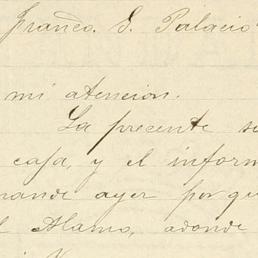 Franco. G. Palacio
mi atencion.
La presente
casa, y el inform
mande ayer por qu
Alamo, adonde